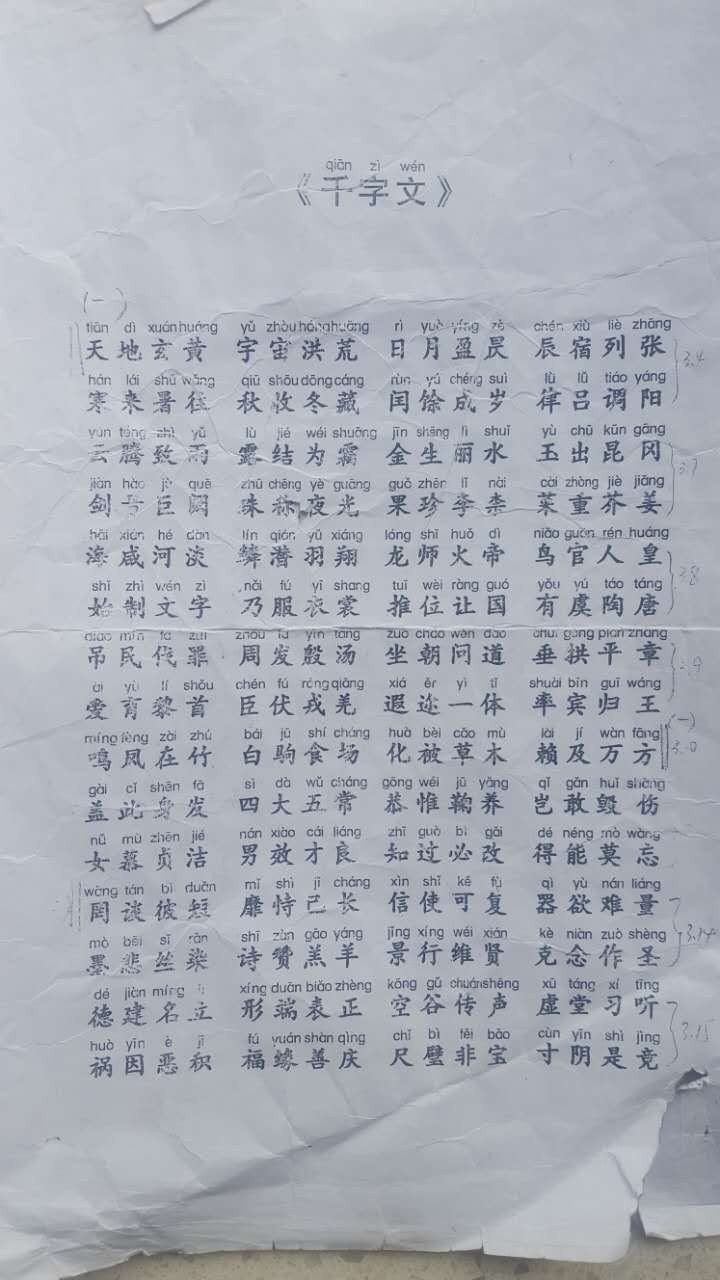 qiān zì wén
《千字文》
(一)
tiān dì xuán huáng yǔ zhòu hóng huāng rì yuè yíng zè chén xiù liè zhāng
天地玄黄 宇宙洪荒 日月盈昃 辰宿列张
3.4
hán lái shǔ wǎng qiū shōu dōng cáng rùn yú chéng suì lǜ lǚ tiáo yáng
寒来暑往 秋收冬藏 闰馀成岁 律吕调阳
yún téng zhì yǔ lù jié wéi shuāng jīn shēng lì shuǐ yù chū kūn gāng
云腾致雨 露结为霜 金生丽水 玉出昆冈
3.7
jiàn hào jù quē zhū chēng yè guāng guǒ zhēn lǐ nài cài zhòng jiè jiāng
剑号巨阙 珠称夜光 果珍李柰 菜重芥姜
hǎi xián hé dàn lín qián yǔ xiáng lóng shī huǒ dì niǎo guān rén huáng
海咸河淡 鳞潜羽翔 龙师火帝 鸟官人皇
3.8
shǐ zhì wén zì nǎi fú yī shang tuī wèi ràng guó yǒu yú táo táng
始制文字 乃服衣裳 推位让国 有虞陶唐
diào mín fá zuì zhōu fā yīn tāng zuò cháo wèn dào chuí gǒng píng zhāng
吊民伐罪 周发殷汤 坐朝问道 垂拱平章
3.9
ài yù lí shǒu chén fú róng qiāng xiá ěr yì tǐ shuài bīn guī wáng
爱育黎首 臣伏戎羌 遐迩一体 率宾归王
(一)
míng fèng zài zhú bái jū shí cháng huà bèi cǎo mù lài jí wàn fāng
鸣凤在竹 白驹食场 化被草木 赖及万方
gài cǐ shēn fà sì dà wǔ cháng gōng wéi jū yǎng qǐ gǎn huǐ shāng
盖此身发 四大五常 恭惟鞠养 岂敢毁伤
nǚ mù zhēn jié nán xiào cái liáng zhī guò bì gǎi dé néng mò wàng
女慕贞洁 男效才良 知过必改 得能莫忘
wǎng tán bǐ duǎn mǐ shì jǐ cháng xìn shǐ kě fù qì yù nán liáng
罔谈彼短 靡恃己长 信使可复 器欲难量
3.14
mò bēi sī rǎn shī zàn gāo yáng jǐng xíng wéi xián kè niàn zuò shèng
墨悲丝染 诗赞羔羊 景行维贤 克念作圣
dé jiàn míng lì xíng duān biǎo zhèng kōng gǔ chuán shēng xū táng xí tīng
德建名立 形端表正 空谷传声 虚堂习听
3.15
huò yīn è jī fú yuán shàn qìng chǐ bì fēi bǎo cùn yīn shì jìng
祸因恶积 福缘善庆 尺璧非宝 寸阴是竞